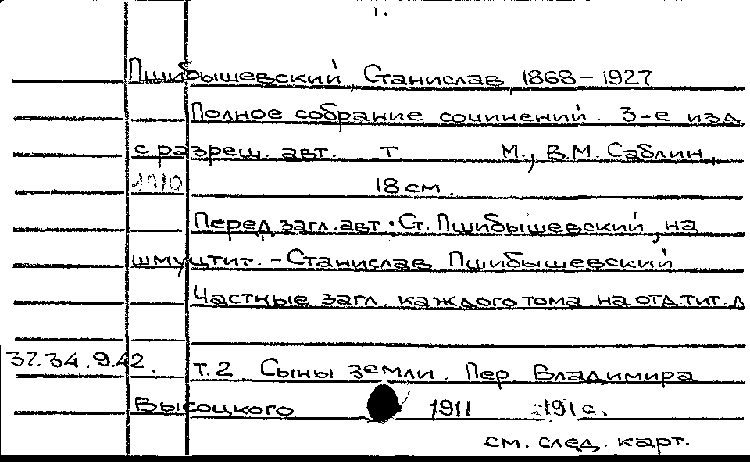 1.
Пшибышевский, Станислав, 1868-1927
Полное собрание сочинений. 3-е изд.
с разреш. авт. Т М., В.М. Саблин,
1910
18 см.
Перед загл. авт.: Ст. Пшибышевский, на
шмуцтит. - Станислав Пшибышевский
Частные загл. каждого тома на отд. тит. л
37.34.9.42. т.2 Сыны земли. Пер. Владимира
Высоцкого 1911 191 с.
см. след. карт.